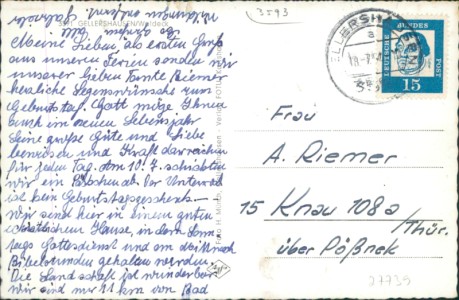 3593
3581 GELLERSHAUSEN/
Meine Lieben als ersten Gruß
aus unseren Ferien senden wir
unserer lieben Tante Riemer
herzliche Segenswünsche zum
Geburtstag. Gott möge Ihnen
auch im neuen Lebensjahr
Seine große Güte und Liebe
beweisen und Kraft darreichen
für jeden Tag. Am 10.7. schickten
wir ein Päckchen ab. Der Unterrock
ist kein Geburtstagsgeschenk
Wir sind hier in einem guten
christlichen Hause, in dem Sonn-
tags Gottesdienst und am Mittwoch
Bibelstunden gehalten werden.
Die Landschaft ist wunderbar
wir sind nur 11 km von Bad
DEUTSCHE BUNDESPOST
15
Frau
A. Riemer
15 Knau 108a
Thür.
über Pößneck
27739